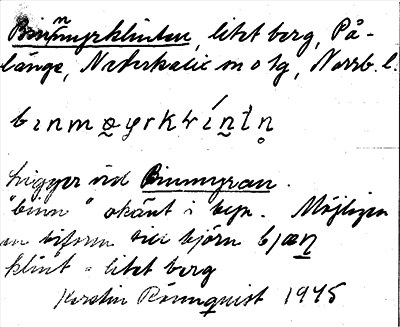 Binnmyrklinten, litet berg, På-
länge, Nederkalix sn o tg, Norrb. l.
bɪnmy̱rkḷíṉtṇ
Ligger vid Binnmyran.
"binn" okänt i byn. Möjligen
en biform till björn bjæṉ
klint = litet berg
Kerstin Rönnquist 1945